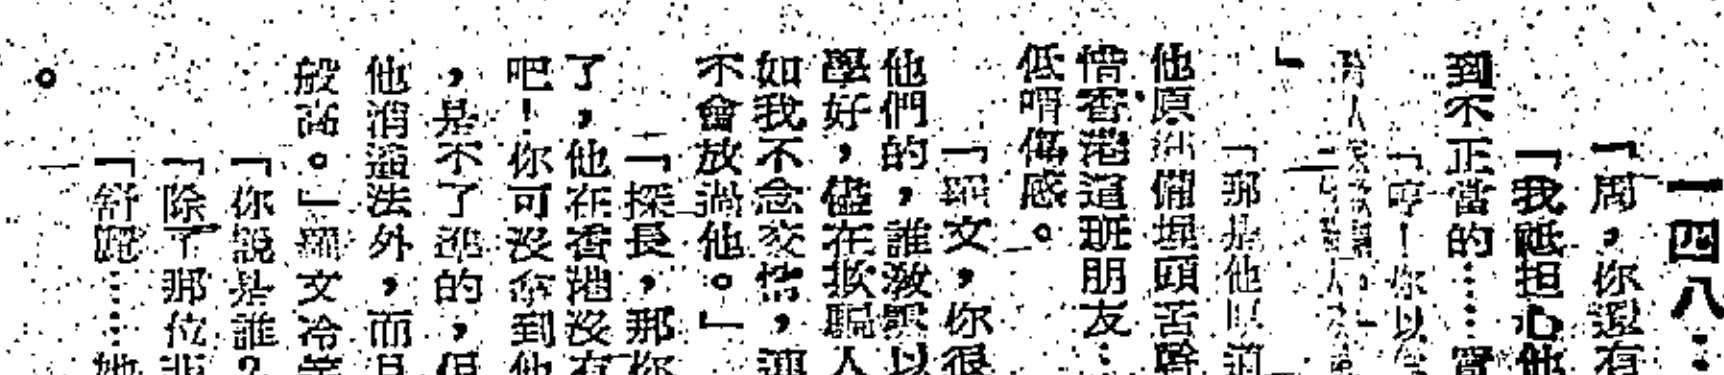 一四八：
「周，你還有
「我祗担心他
到不正當的……實
「哼！你以
」
「那是他
他原 備埋頭苦幹
惜香港這班朋友…
低喟傷感。
「羅文，你很
他們的，誰 以
學好，儘在欺騙人
如我不念交情，連
不會放過他。」
「探長，那你
了，他在香港沒有
吧！你可沒拿到他
，是不了 的，但
他消遙法外，而且
般 。」羅文冷笑
「你說是誰？
「除了那位非
「舒 ……她
。